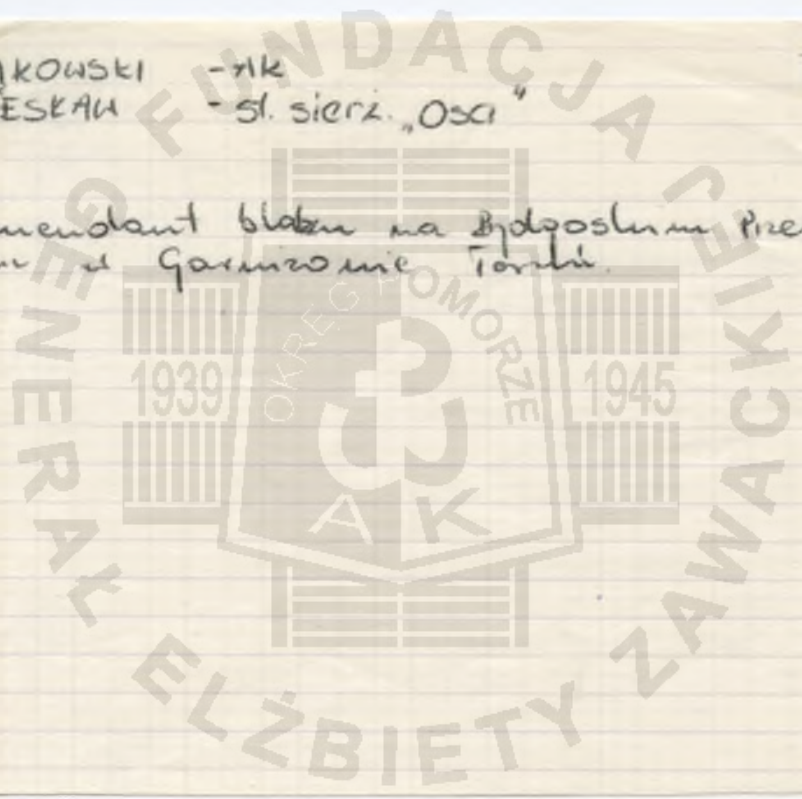 KOWSKI - AK
ESŁAW - st. sierż. „Ości"
mendant bloku na Bydgoskim Prze
w Garnizonie Toruń.
FUNDACJA
GENERAŁ ELŻBIETY ZAWACKIEJ
OKRĘG POMORZE
1939
1945
AK